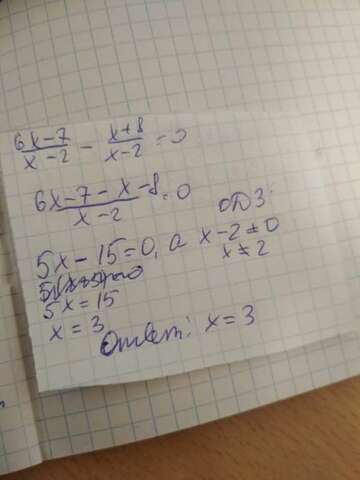 (6x-7)/(x-2) - (x+8)/(x-2) = 0
(6x-7-x-8)/(x-2) = 0
ОДЗ:
5x-15=0, а x-2≠0
x≠2
5x=15
x=3
Ответ: x=3